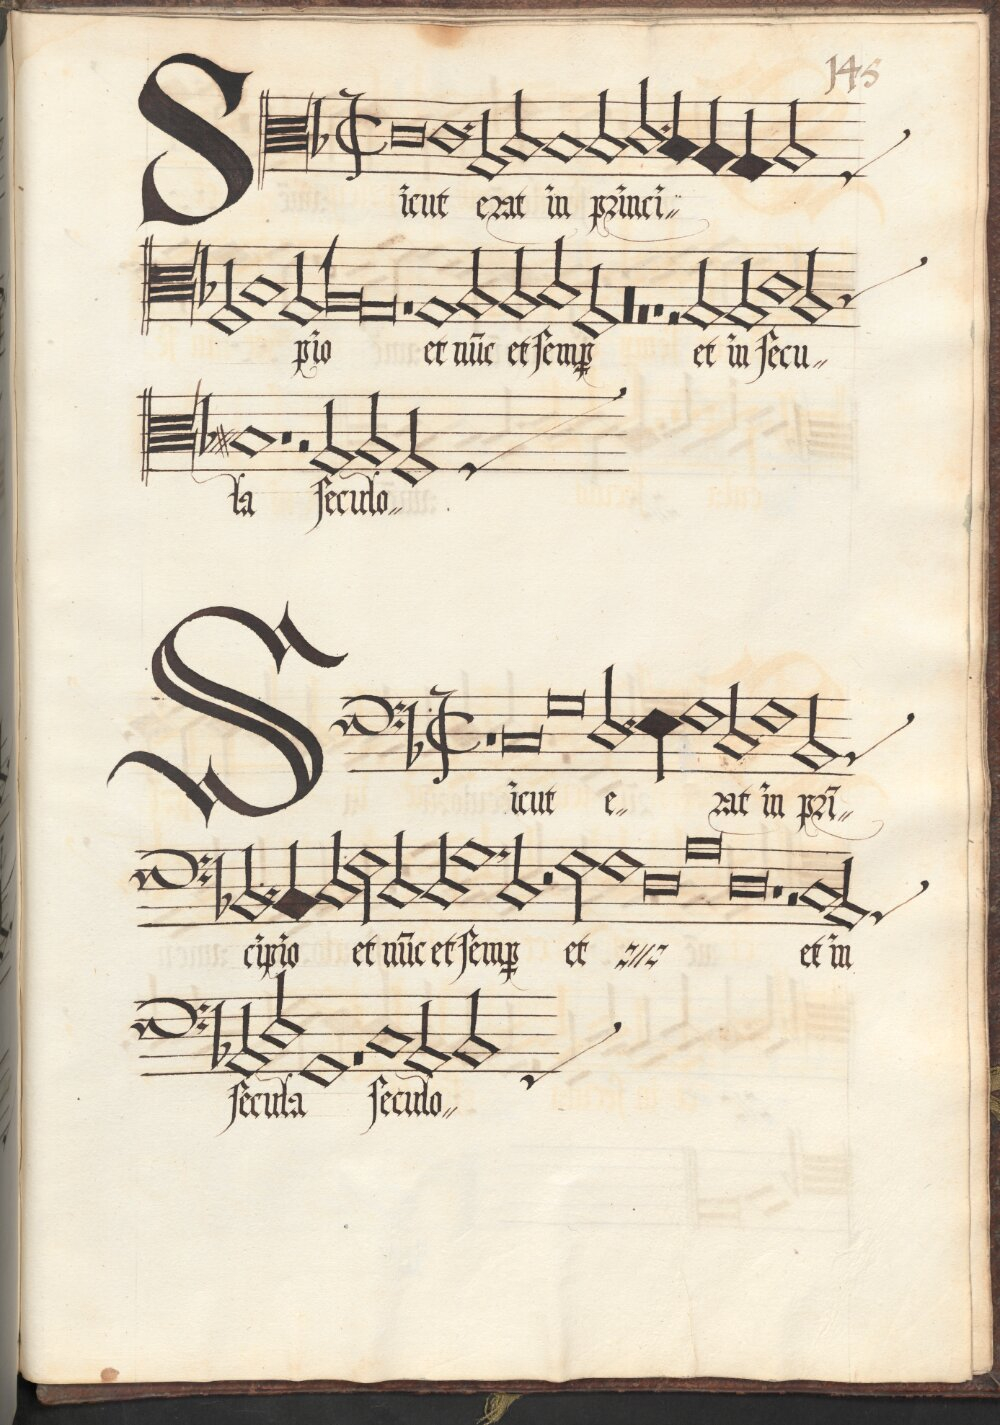 145
Sicut erat in princi〃
pio et nūc et semp et in secu〃
la seculo〃
Sicut e〃 rat in pri〃
cipio et nūc et semp et et in
secula seculo〃